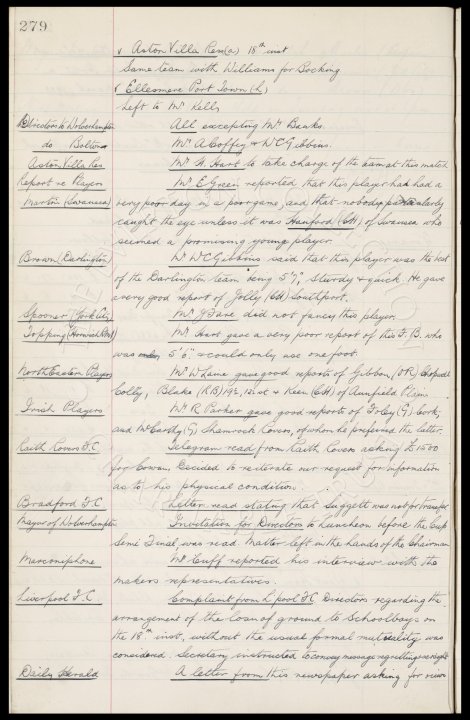 279
v Aston Villa Res (a) 18th inst
Same team with Williams for Bocking
v Ellesmere Port Town (h)
Left to Mr Kelly
Directors to Wolverhampton All excepting Mr Banks.
do Bolton Mr A Coffey & W C Gibbins.
Aston Villa Res Mr W. Hart to take charge of the team at this match
Report re Players Mr E Green reported that this player had had a
Martin (Swansea) very poor day in a poor game, and that nobody particularly
caught the eye unless it was Hanford (CH) of Swansea who
seemed a promising young player.
Brown (Darlington) Mr W C Gibbins said that this player was the best
of the Darlington team being 5'7", sturdy & quick. He gave
very good report of Jolly Southport.
Spooner (York City) Mr J Fare did not fancy this player.
Topping (Norwich) Mr Hart gave a very poor report of this F.B. who
was 5'6" & could only use one foot.
North Eastern Players Mr W Lane gave good reports of Gibbon, (OR)
Colly, Blake (RB) & Keen (CH) of Annfield Plain
Irish Players Mr R Parker gave good reports of Foley (G) Cork,
and McCarthy (G) Shamrock Rovers, of whom he preferred the latter.
Raith Rovers F.C Telegram read from Raith Rovers asking £1500
for Cowan, decided to reiterate our request for information
as to his physical condition.
Bradford F.C Letter read stating that Suggett was not for transfer
Mayor of Wolverhampton Invitation for Directors to Luncheon before the Cup
Semi Final, was read. Matter left in the hands of the Chairman
Marconiphone Mr Cuff reported his interview with the
makers representatives.
Liverpool F.C. Complaint from L'pool F.C Directors regarding the
arrangement of the loan of ground to Schoolboys on
the 18th inst, without the usual formal mutuality was
considered. Secretary instructed to convey message regretting oversight
Daily Herald A letter from this newspaper asking for views